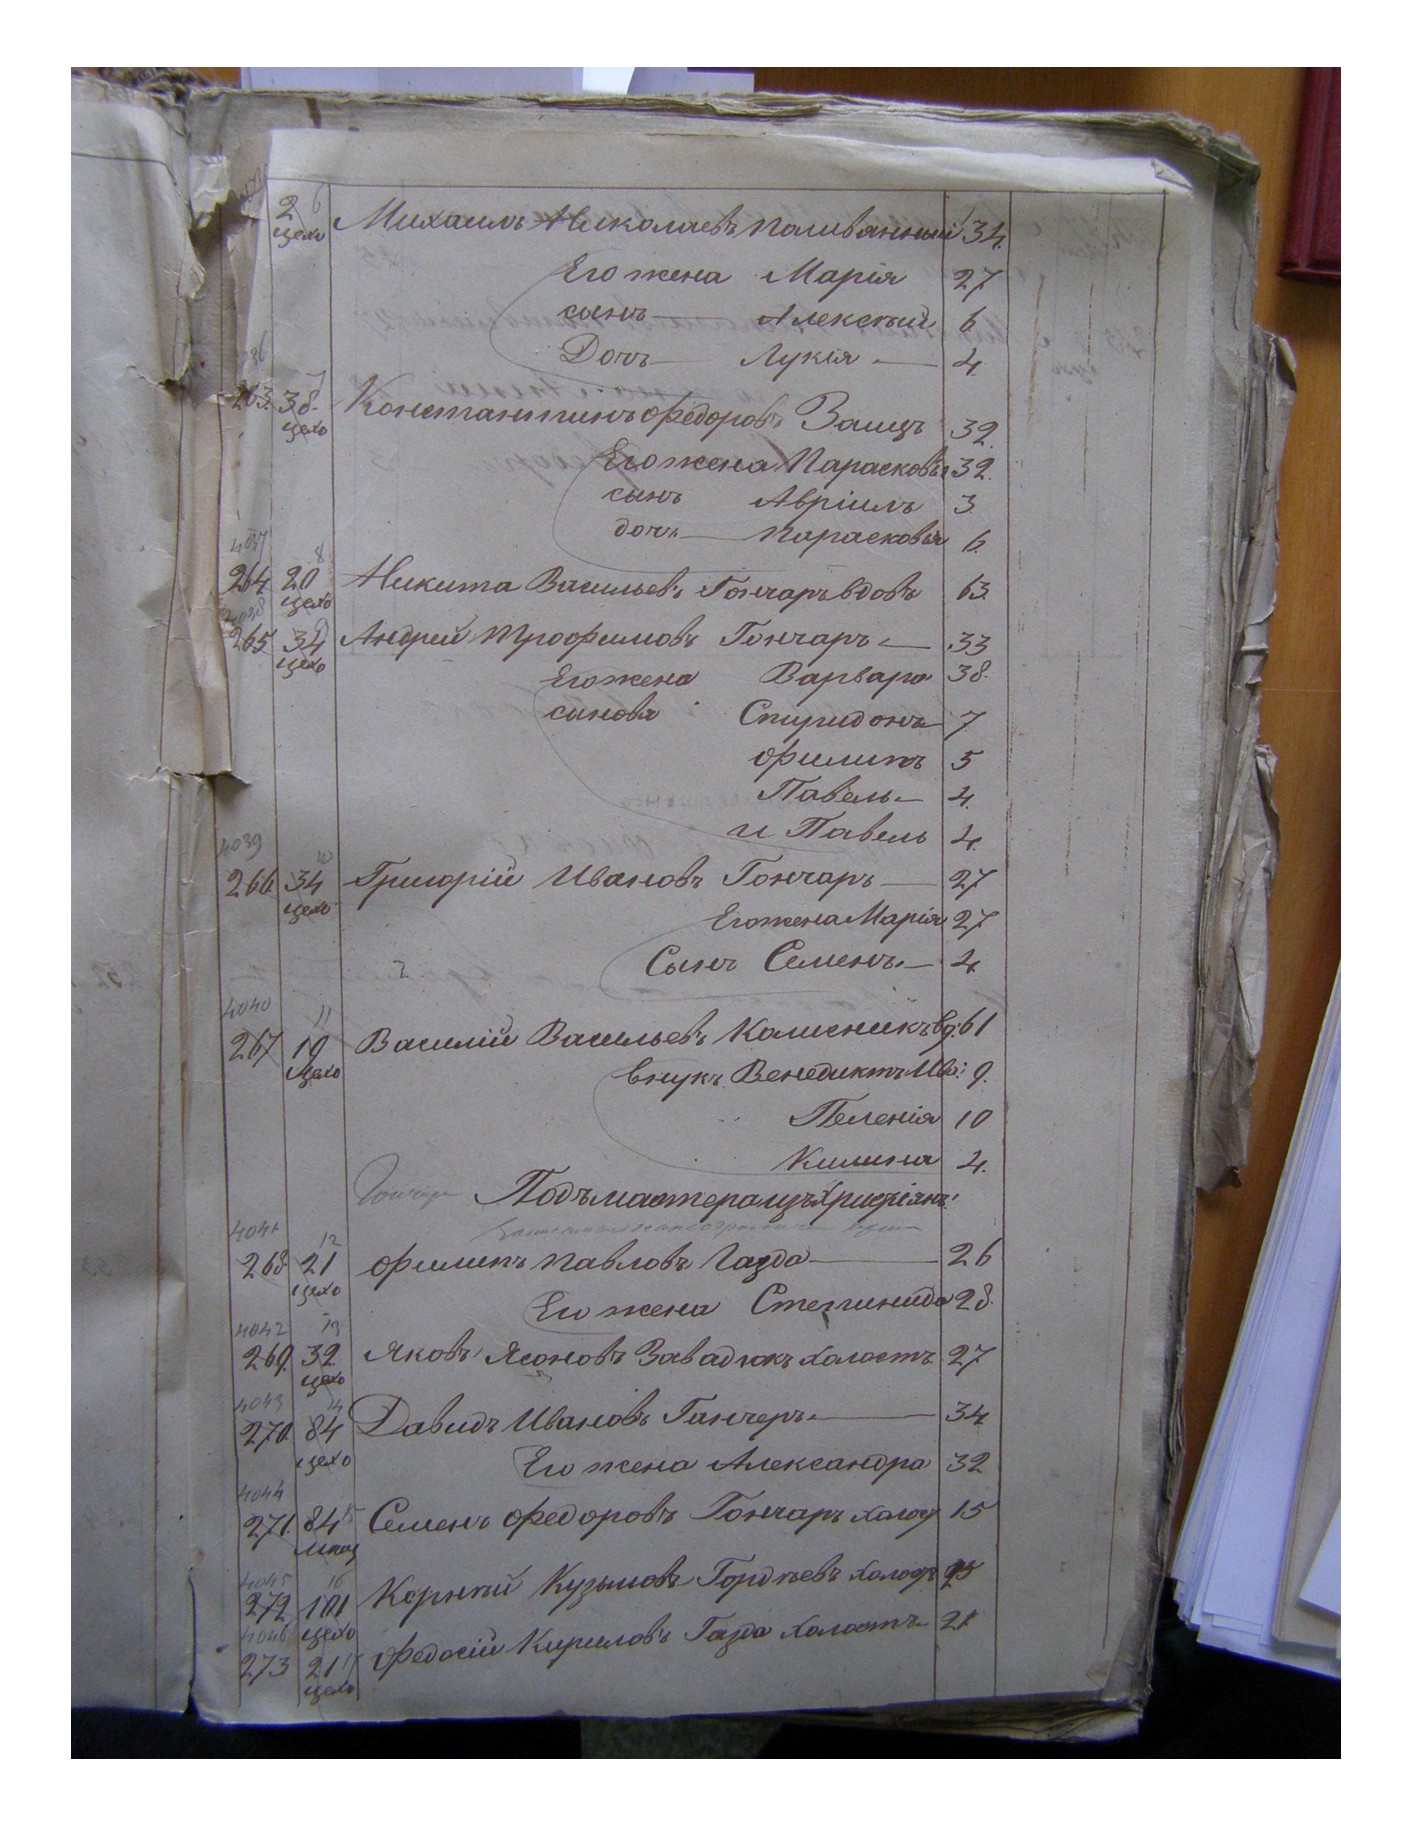 2 6 Михаилъ Николаевъ Поливянный 34.
цехо
Его жена Марія 27
сынъ Алексѣй 6
Дочь Лукія 4.
263. 38. 7 Константинъ Федоровъ Заяцъ 32.
цехо
Его жена Парасковія 32.
сынъ Авріилъ 3
дочь Парасковья 6.
4037 8
264 20 Никита Васильевъ Гончаръ вдовъ 63.
цехо
4038
265 34 9 Андрей Трофимовъ Гончаръ 33
цехо
Его жена Варвара 38.
сыновя Спиридонъ 7
Филипъ 5
Павелъ 4.
и Павелъ 4.
4039 10
266. 34 Григорій Ивановъ Гончаръ 27
цехо
Его жена Марія 27
Сынъ Семенъ 4
4040 11
267 19 Василій Васильевъ Колисникъ вд: 61
цехо
внукъ Венедиктъ Ива: 9.
Пеленія 10
Килина 4.
Гончаре Подъмастерамъ Христіянъ:
4041 12
268. 21 Филипъ Павловъ Газда 26
цехо
Его жена Степинида 28.
4042 13
269. 32 Яковъ Ясоновъ Завадюкъ холостъ 27
цехо
4043 14
270. 84 Давидъ Ивановъ Ганчеръ 34.
цехо
Его жена Александра 32
4044
271. 84 15 Семенъ Федоровъ Гончаръ холос 15
4045 16
272. 101 Корнѣй Кузьмовъ Гордѣевъ холос 25
4046 цехо
273 21 17 Федосій Кириловъ Газда холостъ 21
цехо